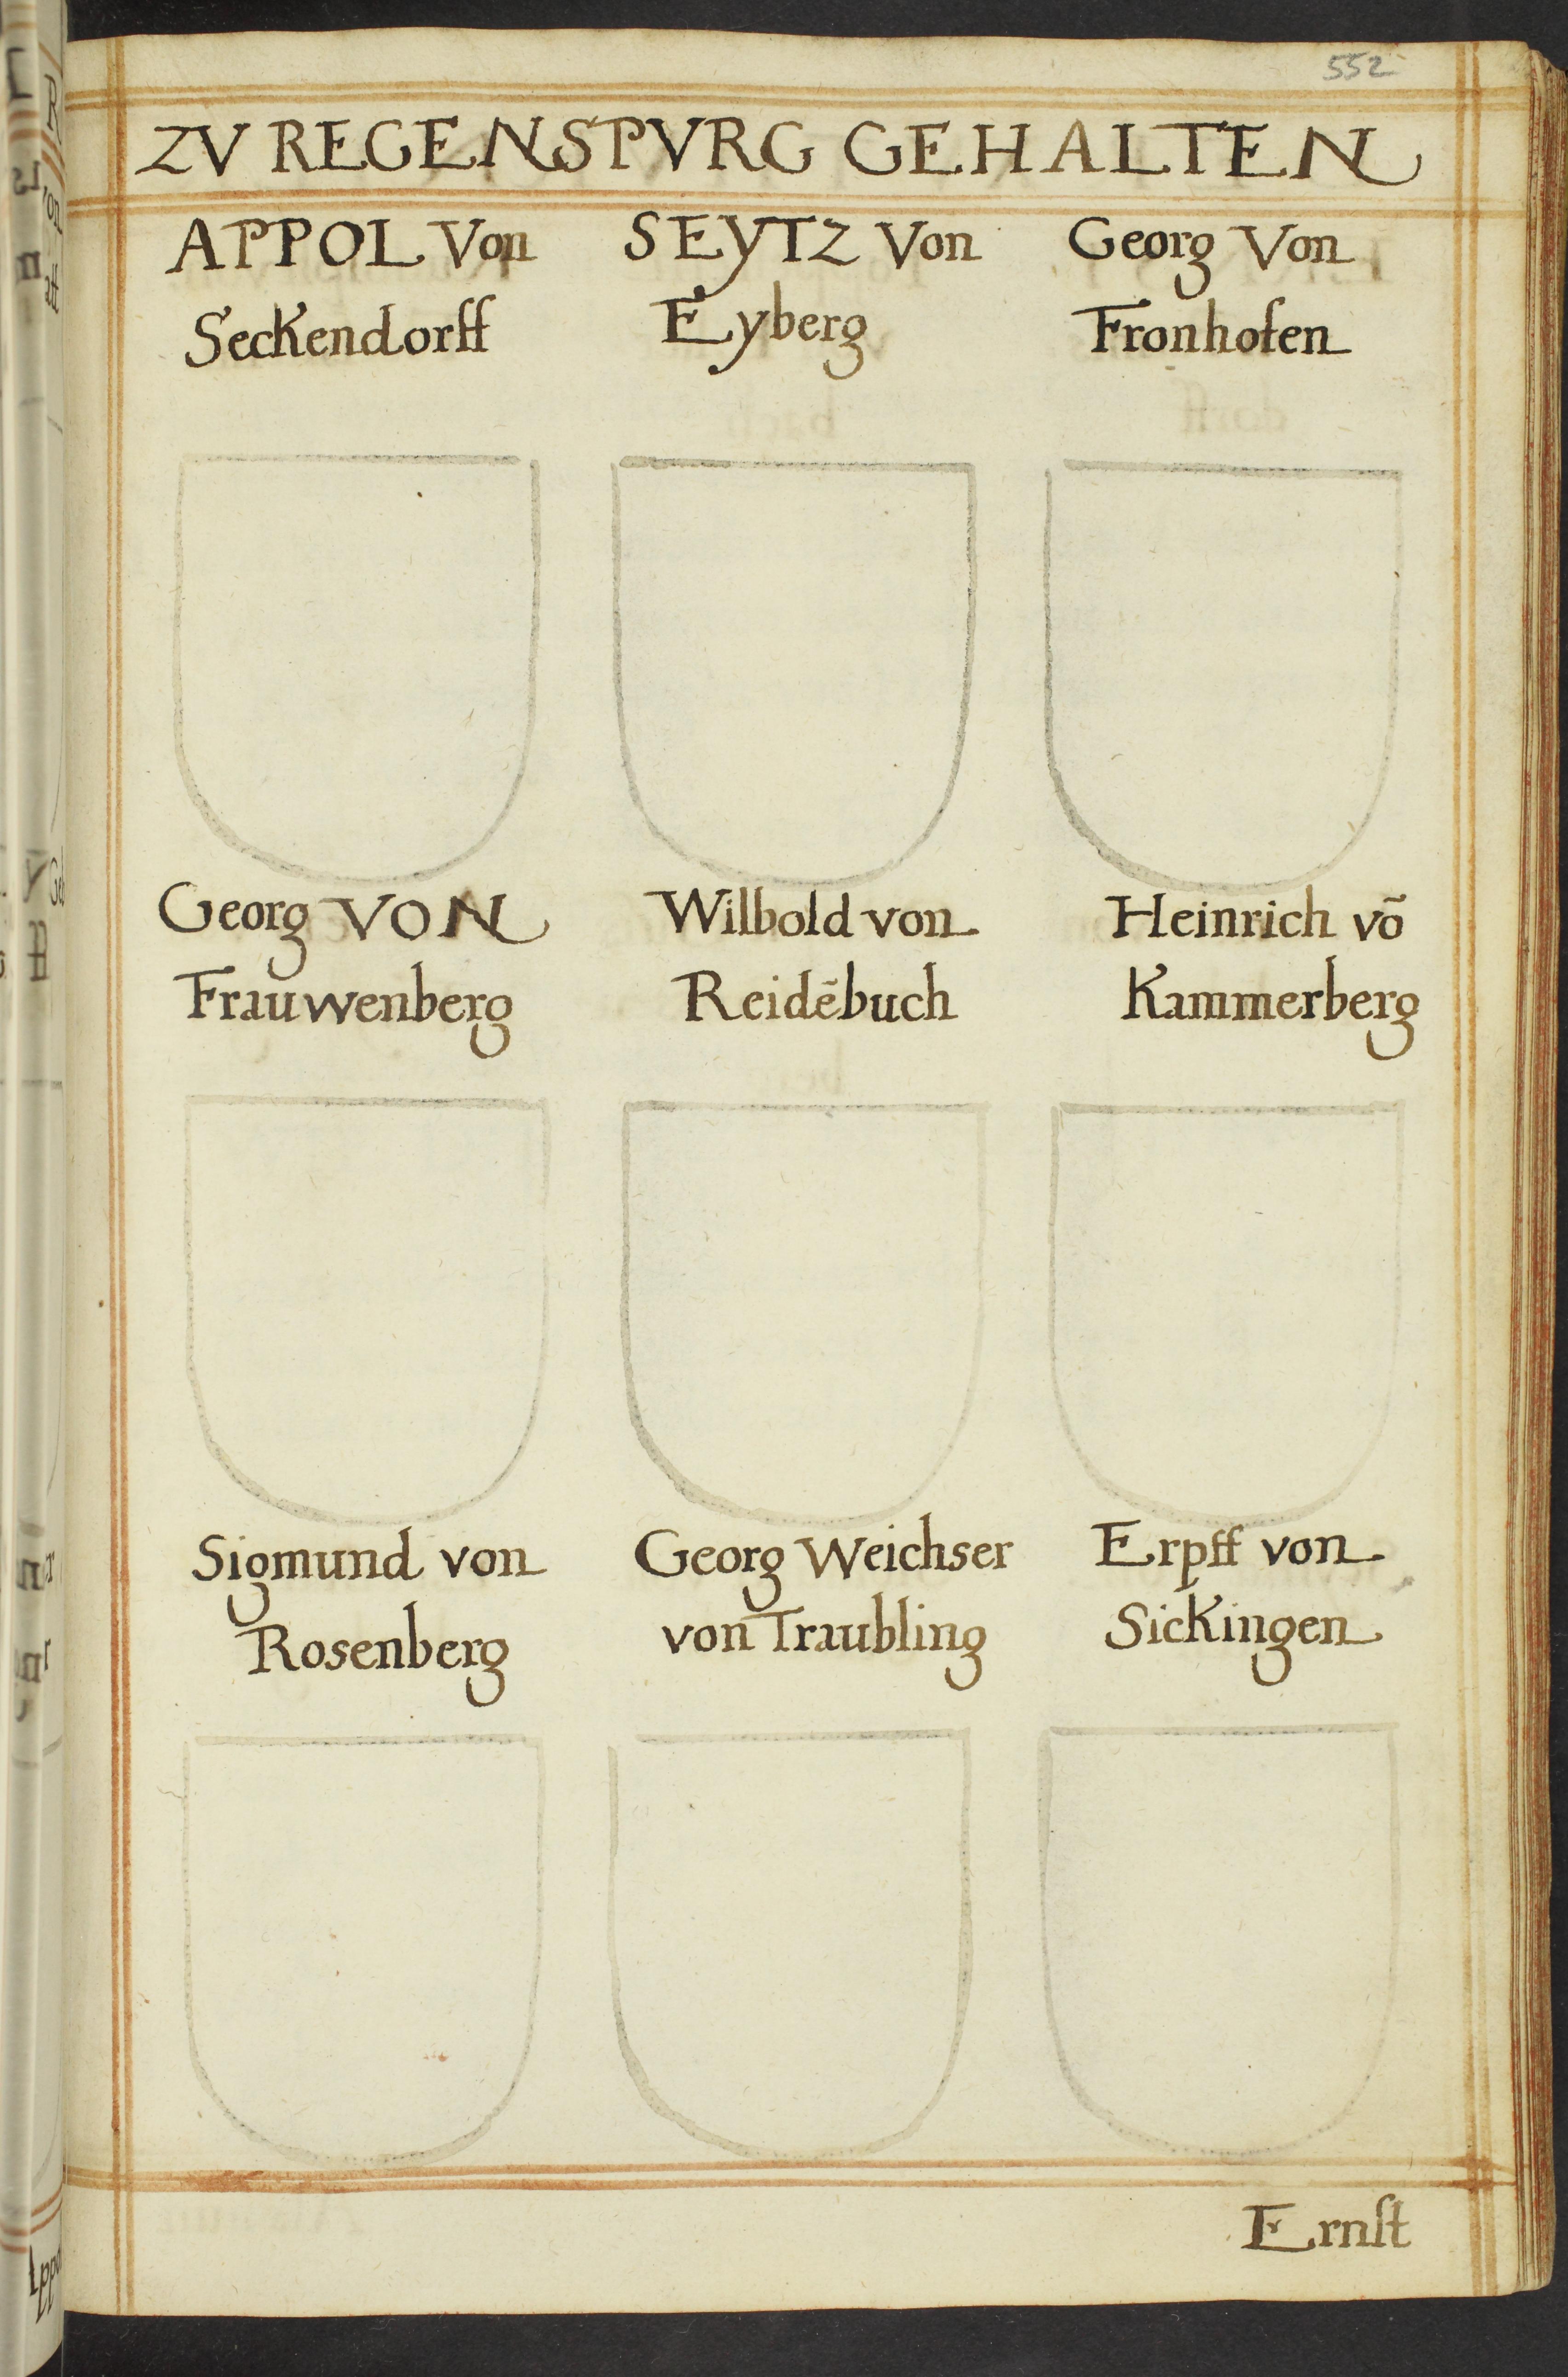 552
ZV REGENSPVRG GEHALTEN
APPOL Von
Seckendorff
SEYTZ Von
Eyberg
Georg Von
Fronhofen
Georg VON
Frauwenberg
Wilbold von
Reidēbuch
Heinrich võ
Kammerberg
Sigmund von
Rosenberg
Georg Weichser
von Traubling
Erpff von
Sickingen
Ernſt